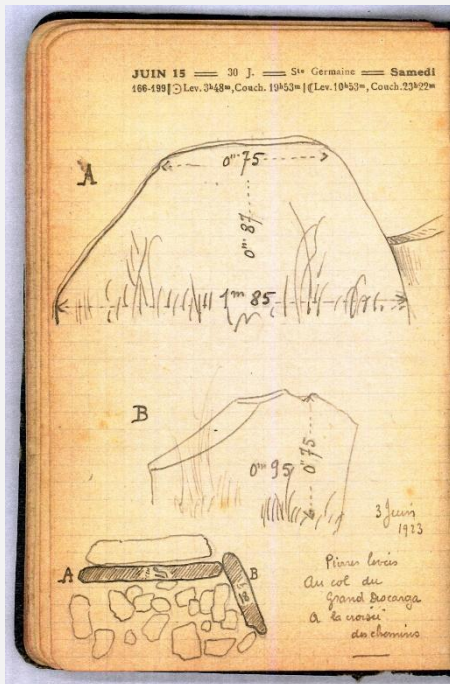 JUIN 15 30 J. Ste Germaine Samedi
166-199 Lev. 3h48m, Couch. 19h53m Lev. 10h53m, Couch. 23h22m
A
0m 75
0m 87
1m 85
B
0m 95
0m 75
3 Juin
1923
A
B
Pierres levées
Au col du
Grand
A la croisée
des chemins